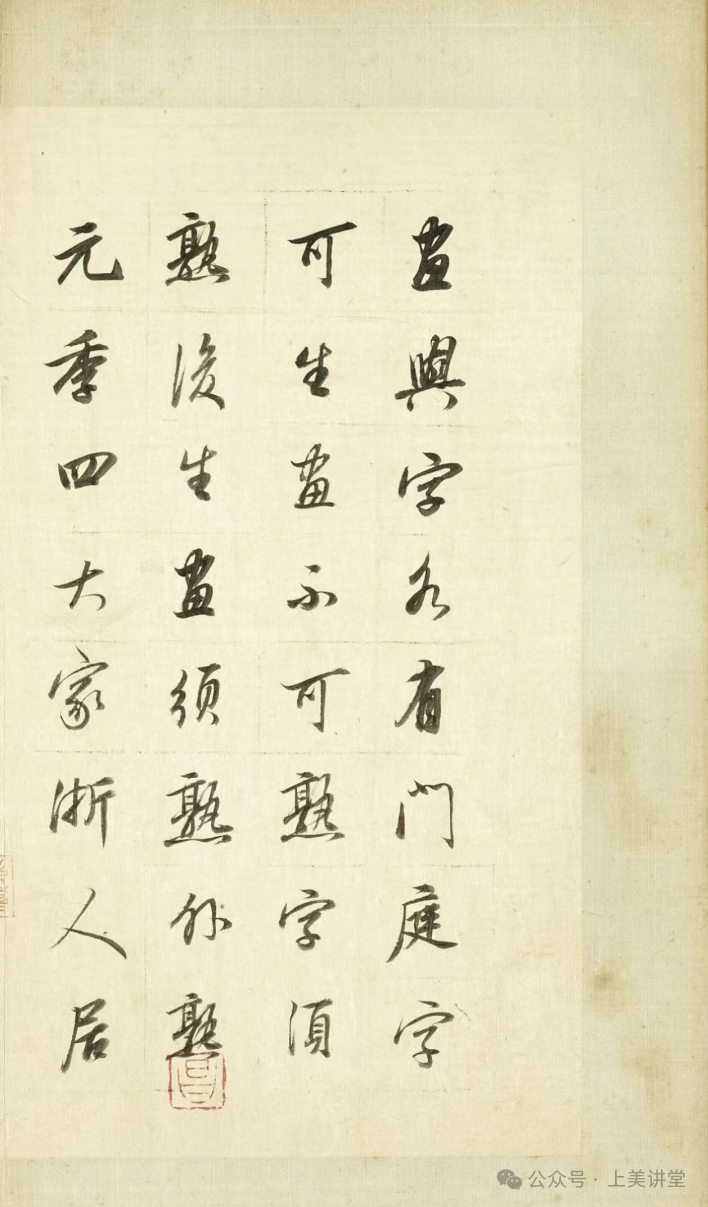 畫與字各有門庭字
可生畫不可熟字須
熟後生畫須熟外熟
元季四大家浙人居
公众号·上美讲堂